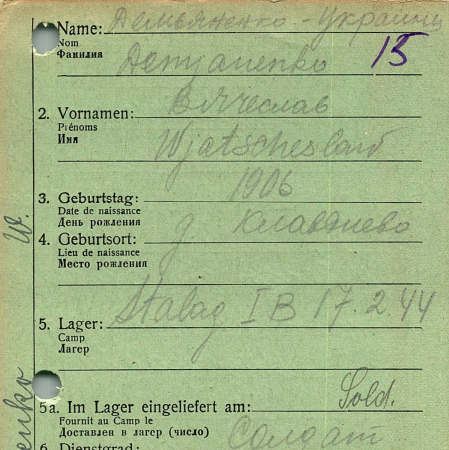 Name: Демьяненко - Украинец
Nom
Фамилия
Demjanenko 15
2. Vornamen: Вячеслав
Prénoms
Имя
Wjatscheslaw
3. Geburtstag: 1906
Date de naissance
День рождения
4. Geburtsort: д Клавдиево
Lieu de naissance
Место рождения
5. Lager: Stalag I B 17.2.44
Camp
Лагерь
5a. Im Lager eingeliefert am: Sold.
Fournit au Camp le
Доставлен в лагерь (число) Солдат
6. Dienstgrad:
enko W.